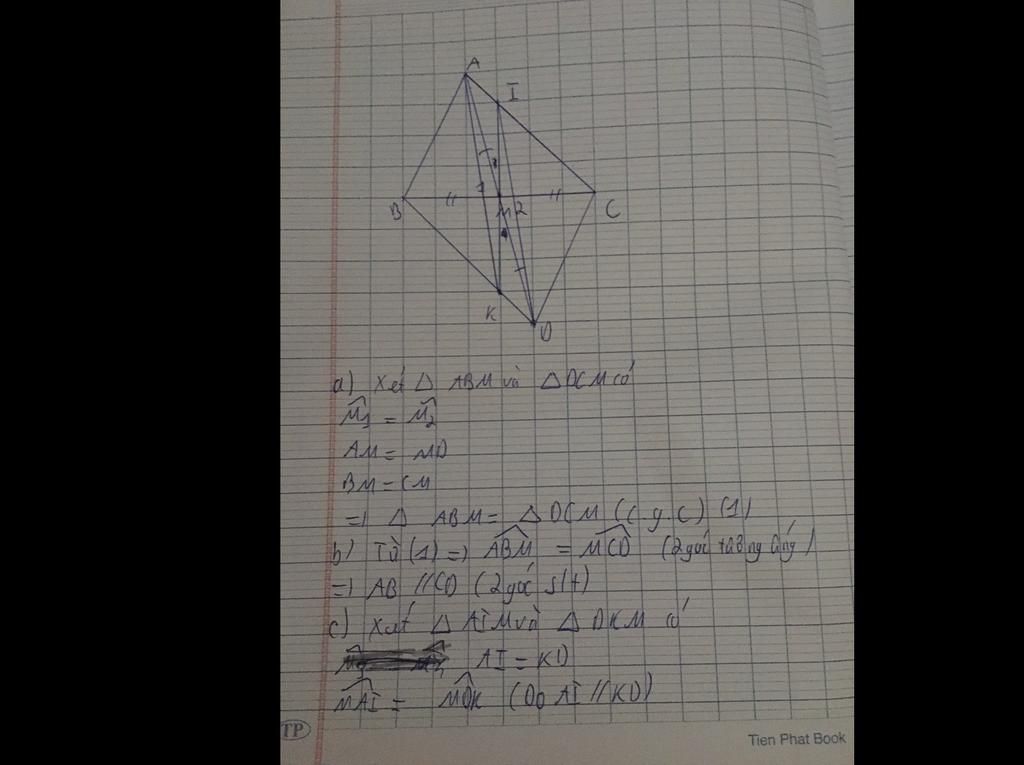 A
I
B
1
M 2
C
K
D
a) Xét Δ ABM và Δ DCM có
M̂1 = M̂2
AM = MD
BM = CM
=) Δ ABM = Δ DCM (c.g.c) (1)
b) Từ (1) =) ABM = MCD (2 góc tương ứng)
=) AB // CD (2 góc slt)
c) Xét Δ AIM và Δ DKM có
AI = KD
MAI = MDK (Do AI // KD)
TP
Tien Phat Book